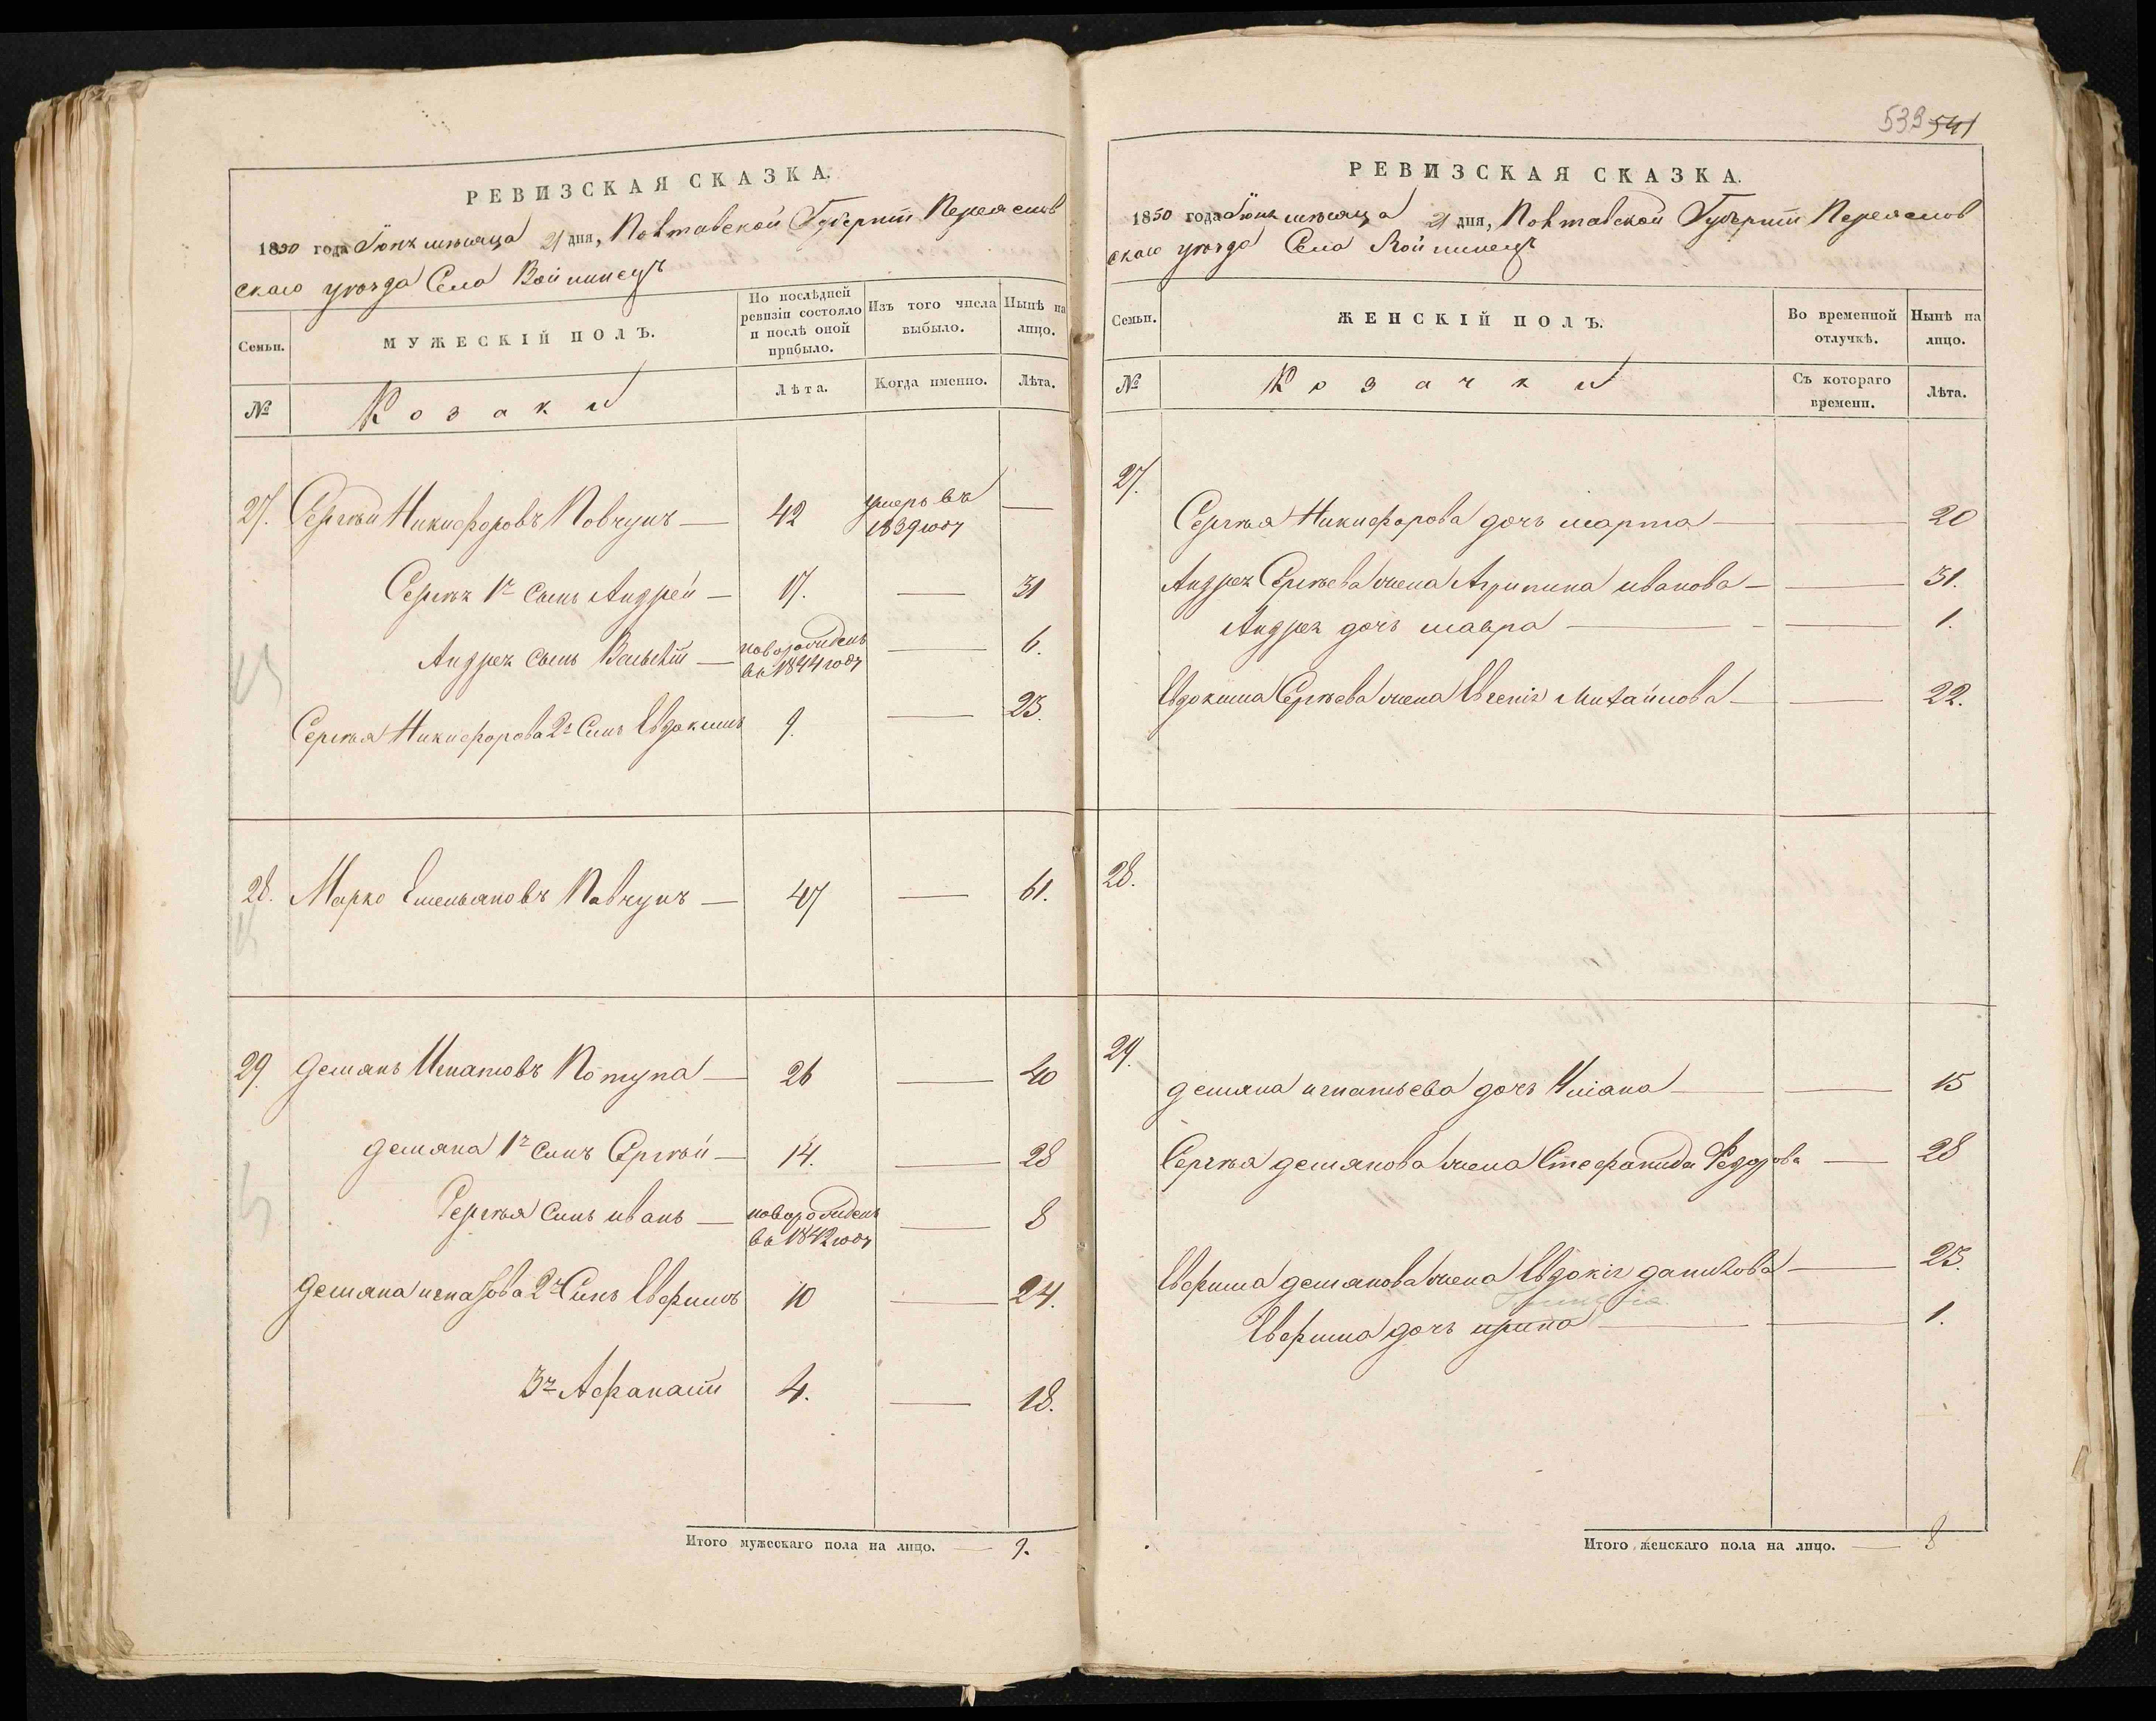 539 541
РЕВИЗСКАЯ СКАЗКА.
1850 года Іюня мѣсяца 21 дня, Полтавской Губерніи Переяслов
скаго уѣзда Села Войнинецъ
Семьи.
МУЖЕСКІЙ ПОЛЪ.
По послѣдней ревизіи состояло и послѣ оной прибыло.
Изъ того числа выбыло.
Нынѣ на лицо.
№
Козаки
Лѣта.
Когда именно.
Лѣта.
27. Сергѣй Никифоровъ Ковчунъ — 42 умеръ въ —
1839 году
Сергѣя 1й Сынъ Андрей — 17. — 31
Андрея Сынъ Василій — новорожденъ — 6.
въ 1844 году
Сергѣя Никифорова 2й Сынъ Евдокимъ 9. — 23.
28. Марко Емельяновъ Ковчунъ — 47 — 61.
29. Демянъ Игнатовъ Котупа — 26 — 40
Демяна 1й сынъ Сергѣй — 14. — 28
Сергѣя сынъ иванъ — новорожденъ — 8
въ 1842 году
Демяна игнатова 2й Сынъ Ефимъ 10 — 24.
3й Афанасій 4. — 18.
Итого мужескаго пола на лицо. — 9.
РЕВИЗСКАЯ СКАЗКА.
1850 года Іюня мѣсяца 21 дня, Полтавской Губерніи Переяслов
скаго уѣзда Села Войнинецъ
Семьи.
ЖЕНСКІЙ ПОЛЪ.
Во временной отлучкѣ.
Нынѣ на лицо.
№
Козачки
Съ котораго времени.
Лѣта.
27.
Сергѣя Никифорова дочь марта — — 20
Андрея Сергѣева жена Агрипина иванова — — 31.
Андрея дочь мавра — — 1.
Евдокима Сергѣева жена Евгенія Михайлова — — 22.
28.
29.
демяна игнатьева дочь Уліана — — 15
Сергѣя демянова жена Стефанида Федорова — 28
Ефима демянова жена Евдокія данилова — 23.
Ефима дочь ирина — — 1.
Итого женскаго пола на лицо. — 8